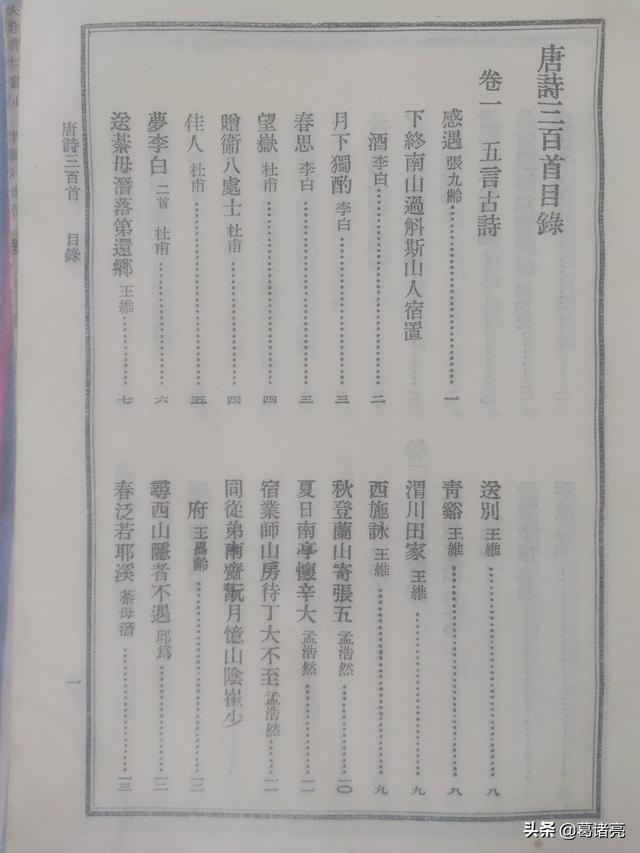 唐詩三百首目錄
卷一 五言古詩
感遇 張九齡……一
下終南山過斛斯山人宿置
酒 李白……二
月下獨酌 李白……三
春思 李白……三
望嶽 杜甫……四
贈衞八處士 杜甫……四
佳人 杜甫……五
夢李白 二首 杜甫……六
送綦毋潛落第還鄉 王維……七
送別 王維……八
青谿 王維……八
渭川田家 王維……九
西施詠 王維……九
秋登蘭山寄張五 孟浩然……一〇
夏日南亭懷辛大 孟浩然……一一
宿業師山房待丁大不至 孟浩然……一一
同從弟南齋翫月憶山陰崔少
府 王昌齡……一二
尋西山隱者不遇 邱爲……一二
春泛若耶溪 綦毋潛……一三
唐詩三百首 目錄
一
头条 @葛诸亮